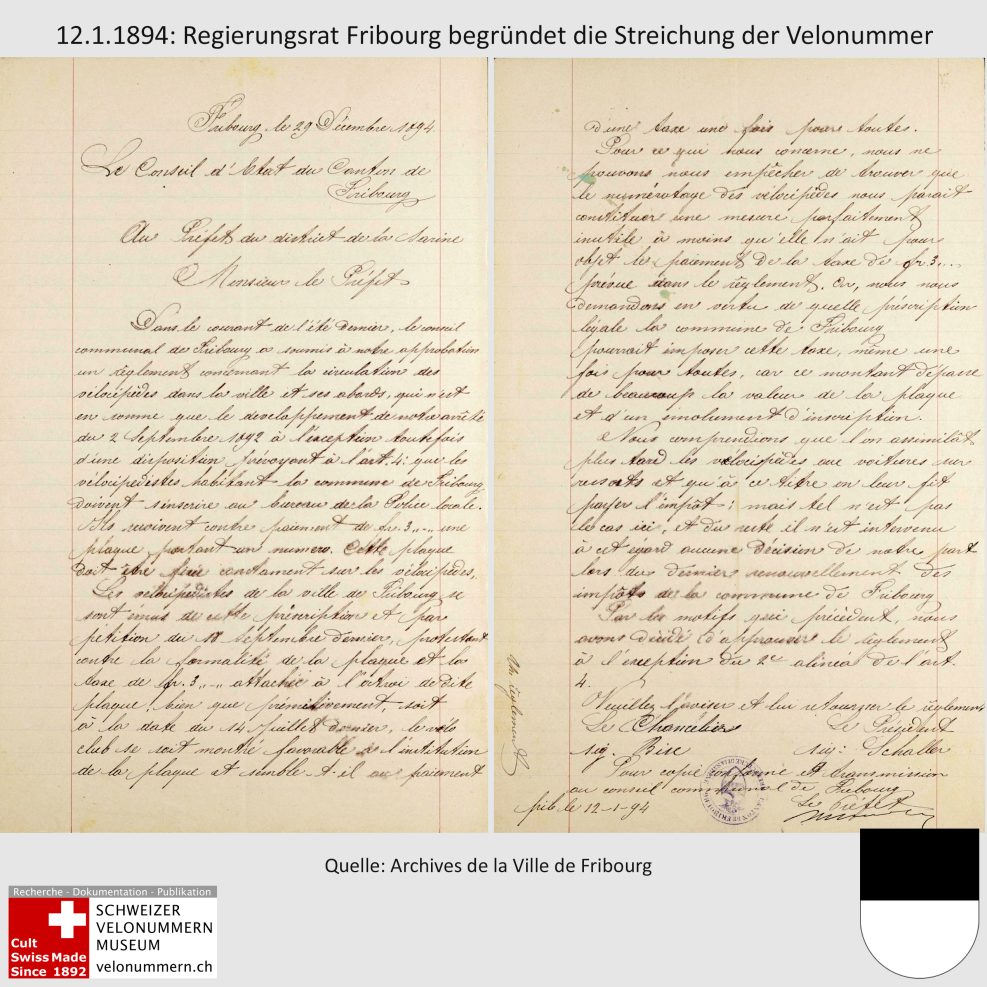 12.1.1894: Regierungsrat Fribourg begründet die Streichung der Velonummer
Fribourg, le 29 Décembre 1894.
Le Conseil d'Etat du Canton de
Fribourg
Au Préfet du district de la Sarine
Monsieur le Préfet
Dans le courant de l'été dernier, le conseil
communal de Fribourg a soumis à notre approbation
un règlement concernant la circulation des
vélocipèdes dans la ville et ses abords, qui n'est
en somme que le développement de notre arrêté
du 2 Septembre 1892 à l'exception toutefois
d'une disposition prévoyant à l'art. 4: que les
vélocipédistes habitant la commune de Fribourg
doivent s'inscrire au bureau de la Police locale.
Ils reçoivent contre paiement de fr. 3.,, une
plaque portant un numéro. Cette plaque
doit être fixée constament sur les vélocipèdes.
Les vélocipédistes de la ville de Fribourg se
sont émus de cette préscription et par
pétition du Septembre dernier, protestent
contre la formalité de la plaque et la
taxe de fr. 3.,, attachée à l'octroi de dite
plaque bien que primitivement, soit
à la date du 14 Juillet dernier, le vélo
club se soit montré favorable à l'institution
de la plaque et semble t-il au paiement
d'une taxe une fois pour toutes.
Pour ce qui nous concerne, nous ne
pouvons nous empêcher de trouver que
le numérotage des vélocipèdes nous paraît
constituer une mesure parfaitement
inutile à moins qu'elle n'ait pour
objet le paiement de la taxe de fr. 3.,,
prévue dans le règlement. Or, nous nous
demandons en vertu de quelle préscription
légale la commune de Fribourg
pourrait imposer cette taxe, même une
fois pour toutes, car ce montant dépasse
de beaucoup la valeur de la plaque
et d'un émolument d'inscription.
Nous comprendrions que l'on assimilât
plus tard les vélocipèdes aux voitures sur
ressorts et qu'à ce titre on leur fit
payer l'impôt; mais tel n'est pas
le cas ici, et du reste il n'est intervenu
à cet égard aucune décision de notre part
lors du dernier renouvellement des
impôts de la commune de Fribourg
Par les motifs qui précèdent, nous
avons décidé d'approuver le règlement
à l'exception du 2e alinéa de l'art.
4.
Veuillez l'aviser et lui retourner le règlement
Le Chancelier Le Président
sig. Bise sig: Schaller
Pour copie conforme et transmission
au conseil communal de Fribourg
frib. le 12-1-94 Le Préfet
règlement
Quelle: Archives de la Ville de Fribourg
Recherche - Dokumentation - Publikation
Cult
Swiss Made
Since 1892
SCHWEIZER
VELONUMMERN
MUSEUM
velonummern.ch